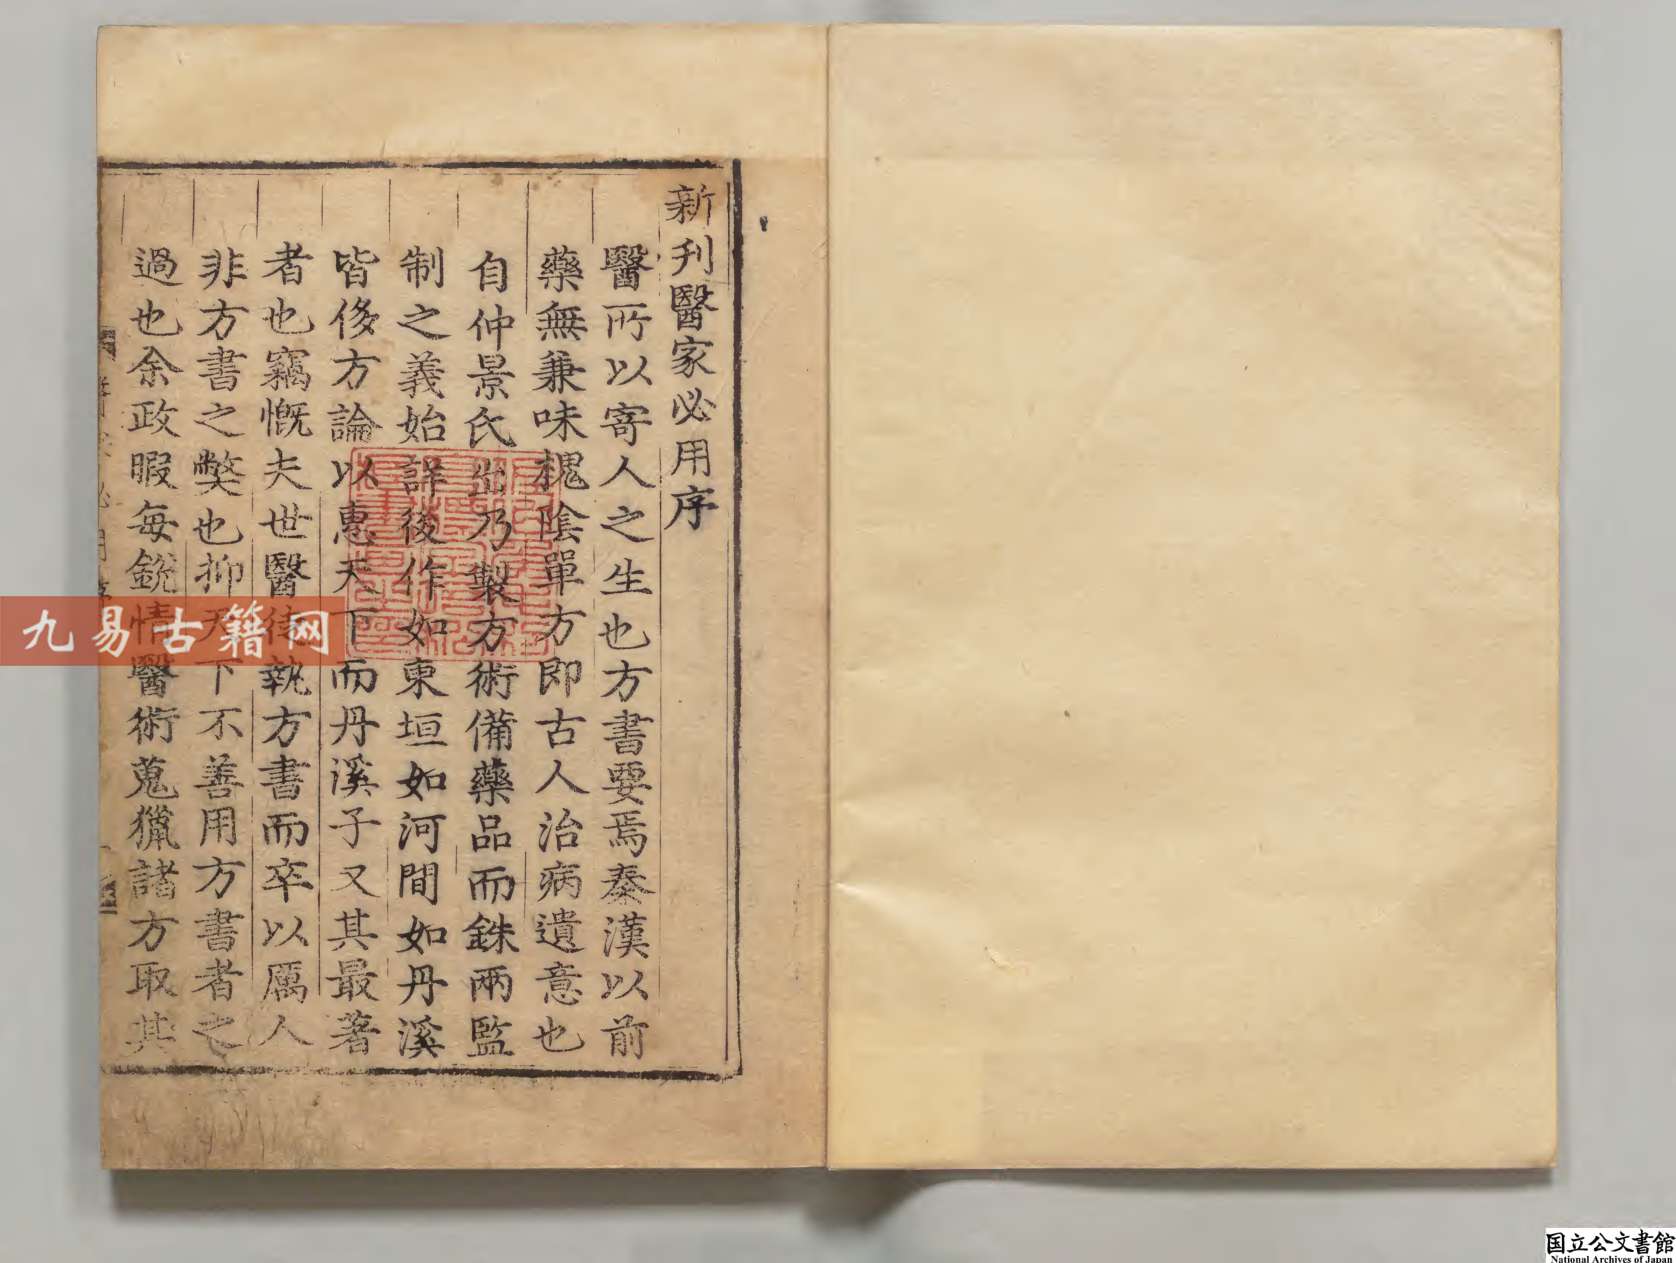 新刋醫家必用序
醫所以寄人之生也方書要焉秦漢以前
藥無兼味槐陰單方即古人治病遺意也
自仲景氏出乃製方術備藥品而銖兩監
制之義始詳後作如東垣如河間如丹溪
皆俢方論以惠天下而丹溪子又其最著
者也竊慨夫世醫徒執方書而卒以厲人
非方書之獘也抑天下不善用方書者之
過也余政暇每銳情醫術蒐獵諸方取其
九易古籍网
国立公文書館
National Archives of Japan